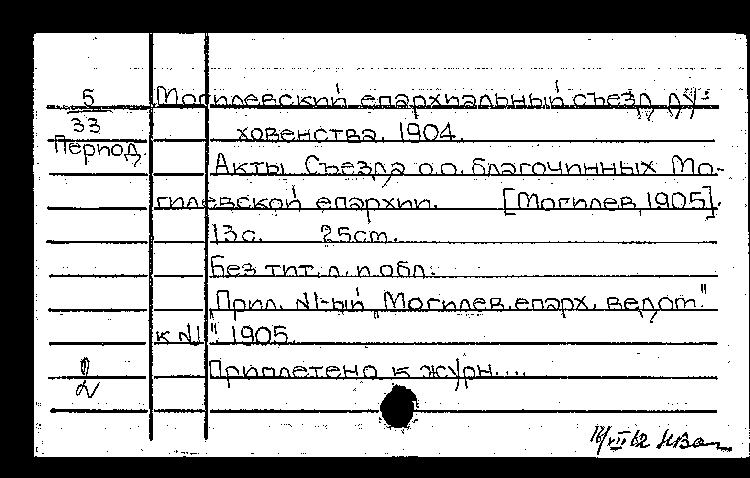 5
33
Период.
Могилевский епархиальный съезд ду-
ховенства. 1904.
Акты Съезда о.о. благочинных Мо-
гилевской епархии. [Могилев, 1905].
13с. 25см.
Без тит. л. и обл.
Прил. №1-ый „Могилев. епарх. ведом."
к №1". 1905.
Приплетено к журн....